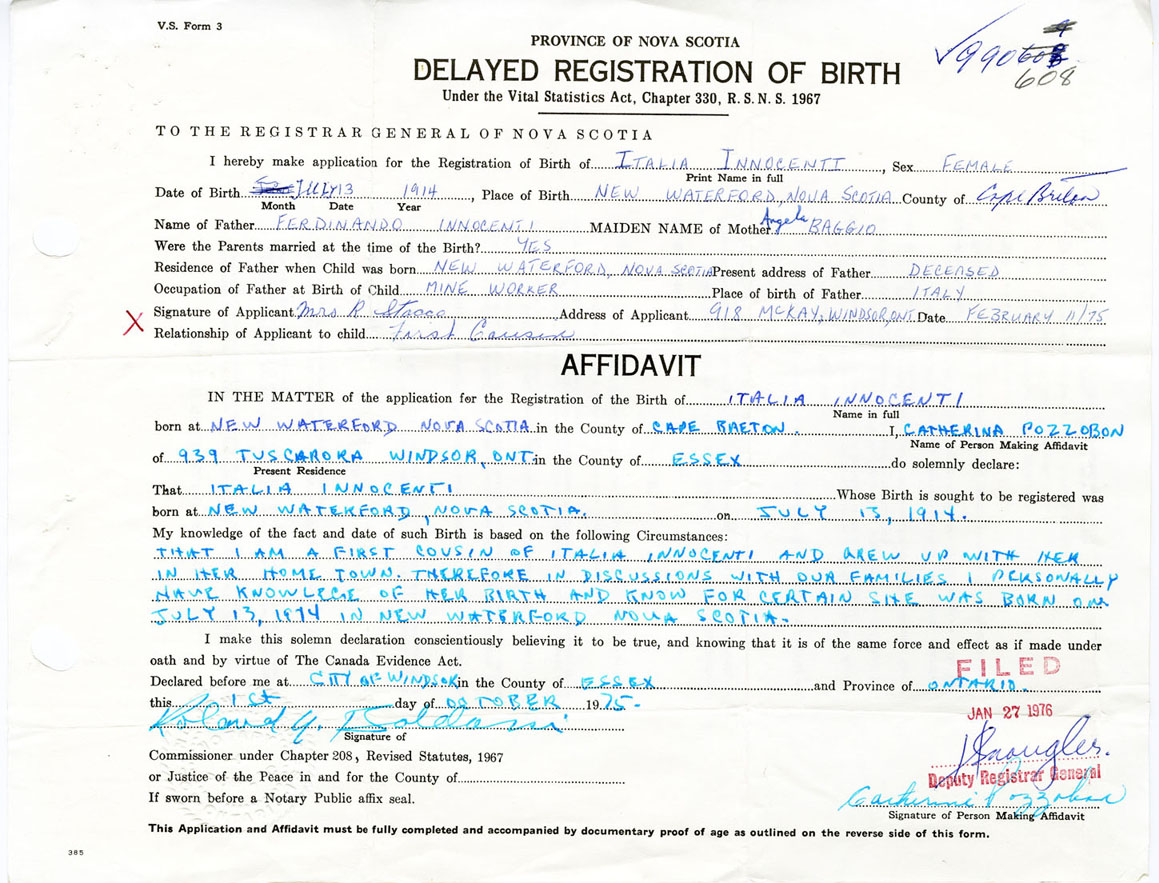 V.S. Form 3
PROVINCE OF NOVA SCOTIA
DELAYED REGISTRATION OF BIRTH
Under the Vital Statistics Act, Chapter 330, R.S.N.S. 1967
990608
608
TO THE REGISTRAR GENERAL OF NOVA SCOTIA
I hereby make application for the Registration of Birth of ITALIA INNOCENTI, Sex FEMALE
Print Name in full
Date of Birth JULY 13 1914, Place of Birth NEW WATERFORD, NOVA SCOTIA County of Cape Briton
Month Date Year
Name of Father FERDINANDO INNOCENTI MAIDEN NAME of Mother Angela BAGGIO
Were the Parents married at the time of the Birth? YES
Residence of Father when Child was born NEW WATERFORD, NOVA SCOTIA Present address of Father DECEASED
Occupation of Father at Birth of Child MINE WORKER Place of birth of Father ITALY
X Signature of Applicant Mrs R Address of Applicant 918 MCKAY, WINDSOR, ONT Date FEBRUARY 11/75
Relationship of Applicant to child First Cousin
AFFIDAVIT
IN THE MATTER of the application for the Registration of the Birth of ITALIA INNOCENTI
Name in full
born at NEW WATERFORD NOVA SCOTIA in the County of CAPE BRETON. I, CATHERINA POZZOBON
Name of Person Making Affidavit
of 939 TUSCARORA WINDSOR, ONT. in the County of ESSEX do solemnly declare:
Present Residence
That ITALIA INNOCENTI Whose Birth is sought to be registered was
born at NEW WATERFORD, NOVA SCOTIA. on JULY 13, 1914.
My knowledge of the fact and date of such Birth is based on the following Circumstances:
THAT I AM A FIRST COUSIN OF ITALIA INNOCENTI AND GREW UP WITH HER
IN HER HOME TOWN. THEREFORE IN DISCUSSIONS WITH OUR FAMILIES I PERSONALLY
HAVE KNOWLEGE OF HER BIRTH AND KNOW FOR CERTAIN SHE WAS BORN ON
JULY 13, 1914 IN NEW WATERFORD NOVA SCOTIA.
I make this solemn declaration conscientiously believing it to be true, and knowing that it is of the same force and effect as if made under
oath and by virtue of The Canada Evidence Act.
FILED
Declared before me at CITY OF WINDSOR in the County of ESSEX and Province of ONTARIO.
this 1st day of OCTOBER 1975.
JAN 27 1976
Signature of
Commissioner under Chapter 208, Revised Statutes, 1967
or Justice of the Peace in and for the County of
Deputy Registrar General
If sworn before a Notary Public affix seal.
Catherine Pozzobon
Signature of Person Making Affidavit
This Application and Affidavit must be fully completed and accompanied by documentary proof of age as outlined on the reverse side of this form.
385